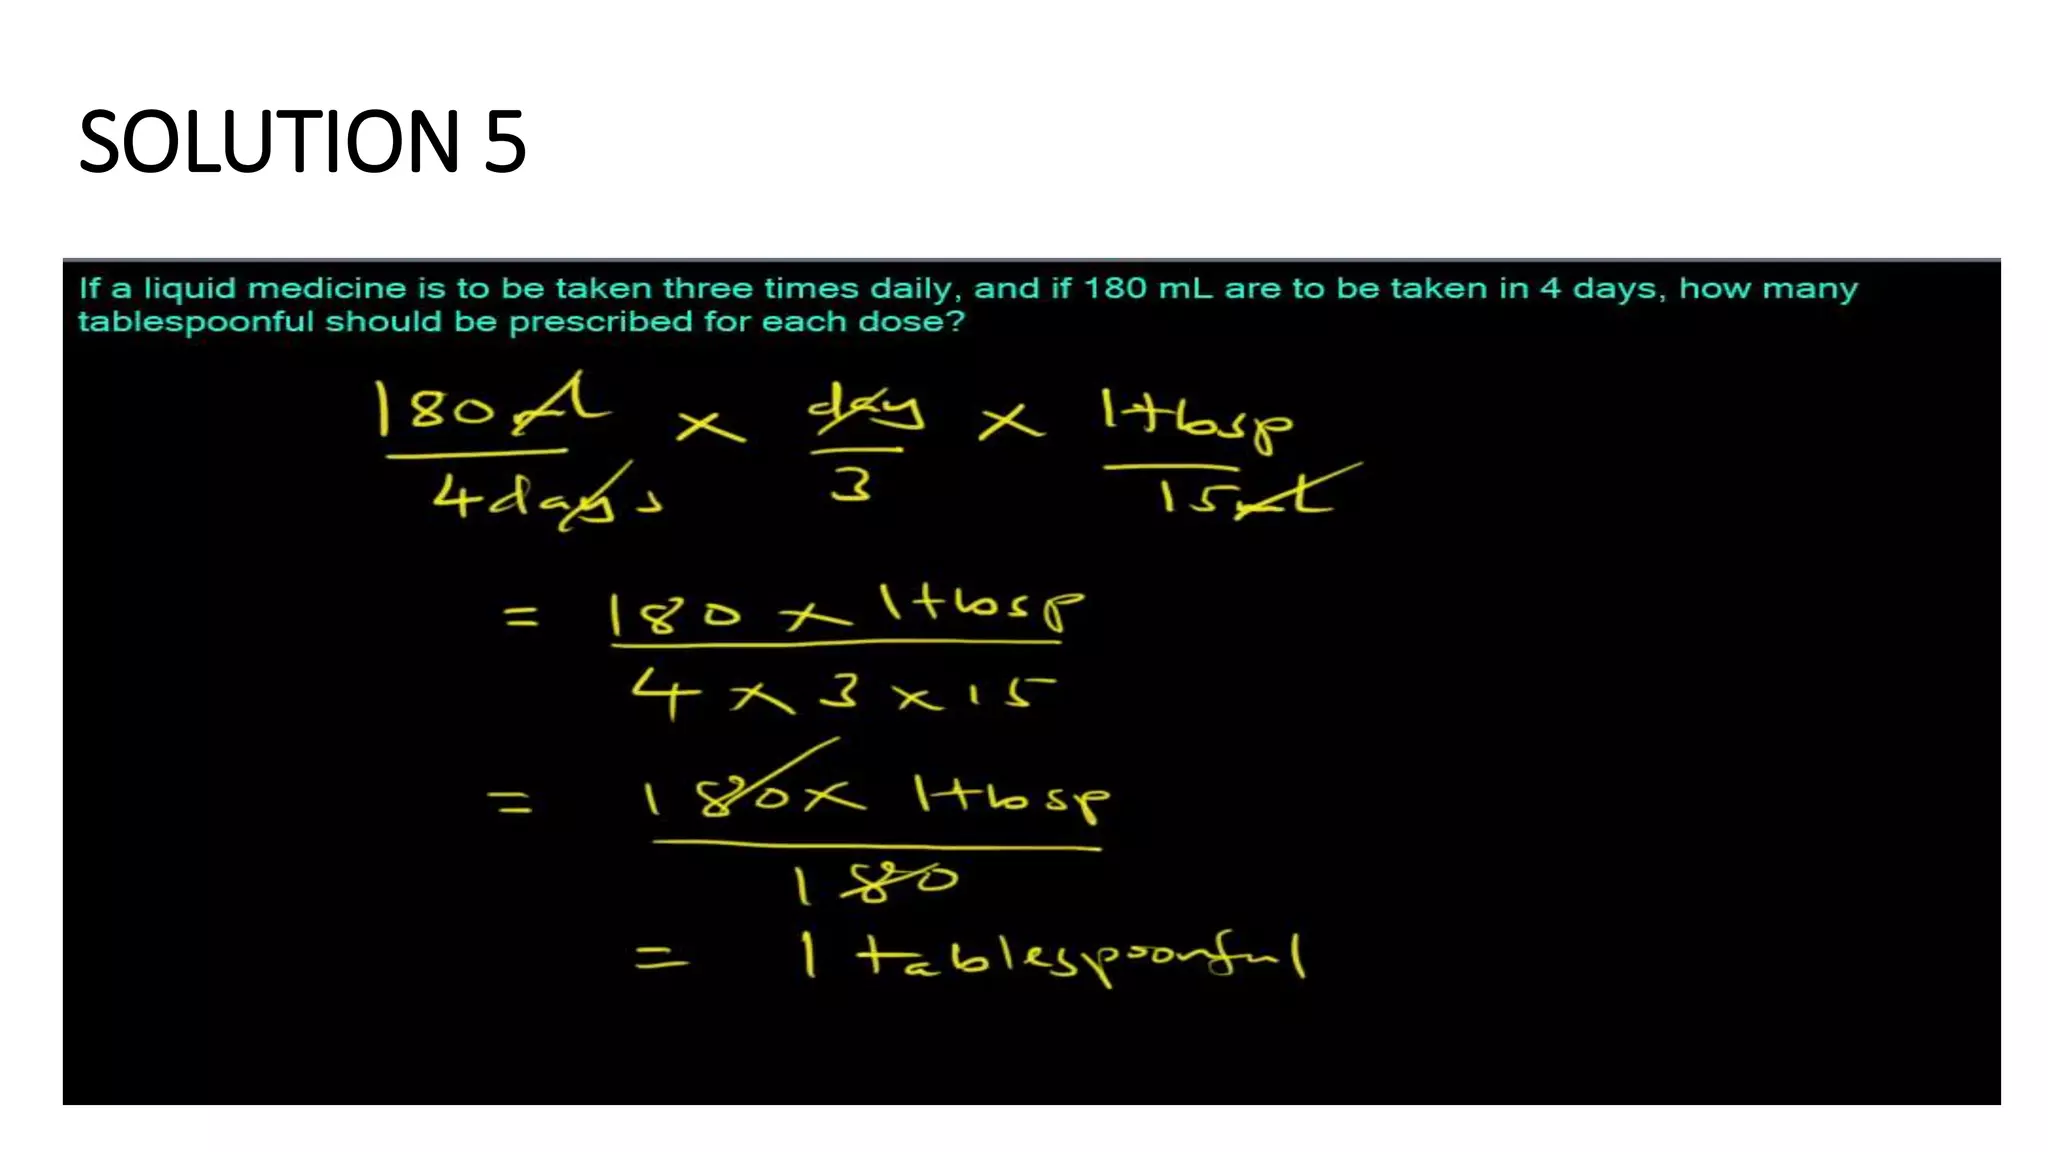 SOLUTION 5
If a liquid medicine is to be taken three times daily, and if 180 mL are to be taken in 4 days, how many
tablespoonful should be prescribed for each dose?
180 mL × day × 1 tbsp
4 days 3 15 mL
= 180 × 1 tbsp
4 × 3 × 15
= 180 × 1 tbsp
180
= 1 tablespoonful